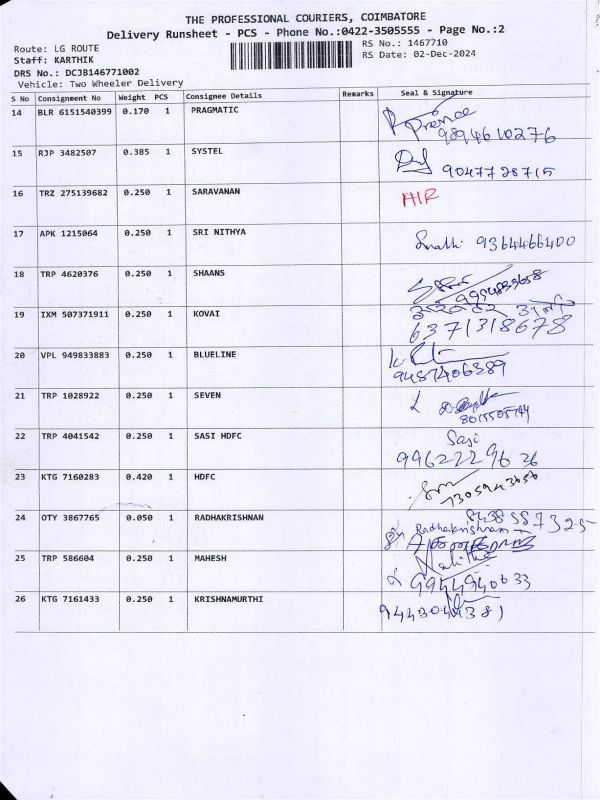 THE PROFESSIONAL COURIERS, COIMBATORE
Delivery Runsheet - PCS - Phone No.:0422-3505555 - Page No.:2
Route: LG ROUTE
RS No.: 1467710
Staff: KARTHIK
RS Date: 02-Dec-2024
DRS No.: DCJB146771002
Vehicle: Two Wheeler Delivery
S No Consignment No Weight PCS Consignee Details Remarks Seal & Signature
14 BLR 6151540399 0.170 1 PRAGMATIC
9894610276
15 RJP 3482507 0.385 1 SYSTEL
9047728715
16 TRZ 275139682 0.250 1 SARAVANAN
17 APK 1215064 0.250 1 SRI NITHYA 9364466400
18 TRP 4620376 0.250 1 SHAANS
19 IXM 507371911 0.250 1 KOVAI
6371318678
20 VPL 949833883 0.250 1 BLUELINE
9487406389
21 TRP 1028922 0.250 1 SEVEN
22 TRP 4041542 0.250 1 SASI HDFC Sasi
9962229636
23 KTG 7160283 0.420 1 HDFC
24 OTY 3867765 0.050 1 RADHAKRISHNAN
Radhakrishnan
25 TRP 586604 0.250 1 MAHESH
9944940633
26 KTG 7161433 0.250 1 KRISHNAMURTHI